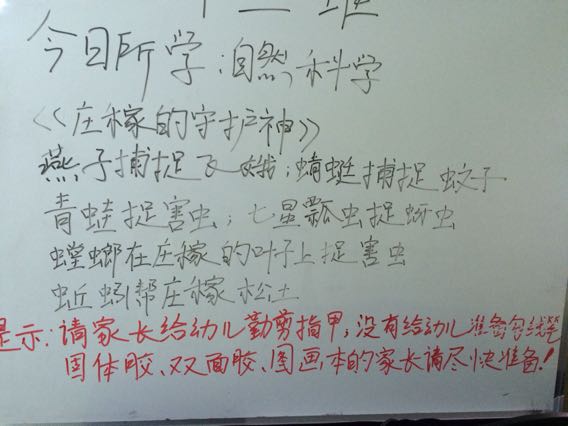 今日所学:自然科学
《庄稼的守护神》
燕子捕捉飞蛾;蜻蜓捕捉蚊子
青蛙捉害虫;七星瓢虫捉蚜虫
螳螂在庄稼的叶子上捉害虫
蚯蚓帮庄稼松土
提示:请家长给幼儿勤剪指甲;没有给幼儿准备勾线笔
固体胶、双面胶、图画本的家长请尽快准备!